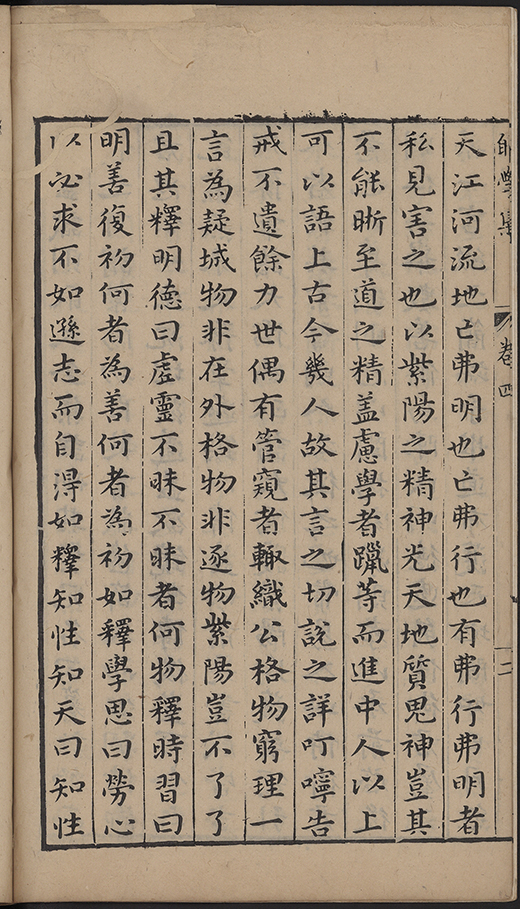 卷四
二
天江河流地亡弗明也亡弗行也有弗行弗明者
私見害之也以紫陽之精神光天地質鬼神豈其
不能晰至道之精盖慮學者躐等而進中人以上
可以語上古今幾人故其言之切說之詳叮嚀告
戒不遺餘力世偶有管窺者輙織公格物窮理一
言為疑城物非在外格物非逐物紫陽豈不了了
且其釋明德曰虛靈不昧不昧者何物釋時習曰
明善復初何者為善何者為初如釋學思曰勞心
以必求不如遜志而自淂如釋知性知天曰知性